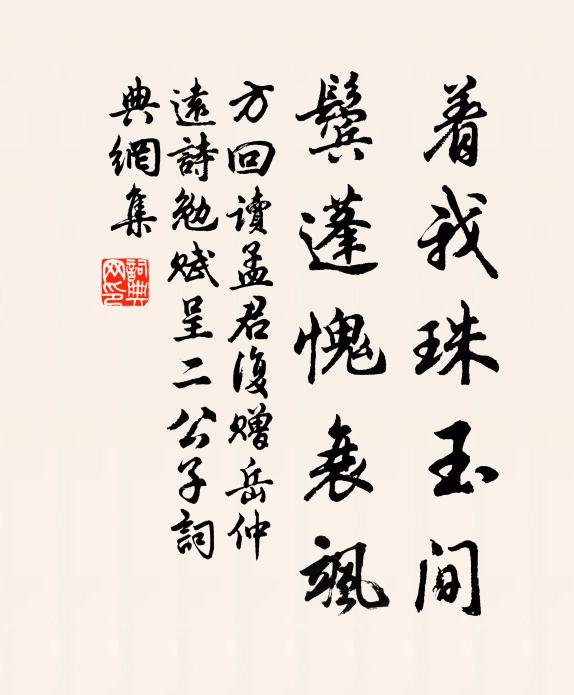 着我珠玉间
鬓蓬愧衰飒
方回读孟君復赠岳仲
遠詩勉赋呈二公子詞
典網集
詞典网印